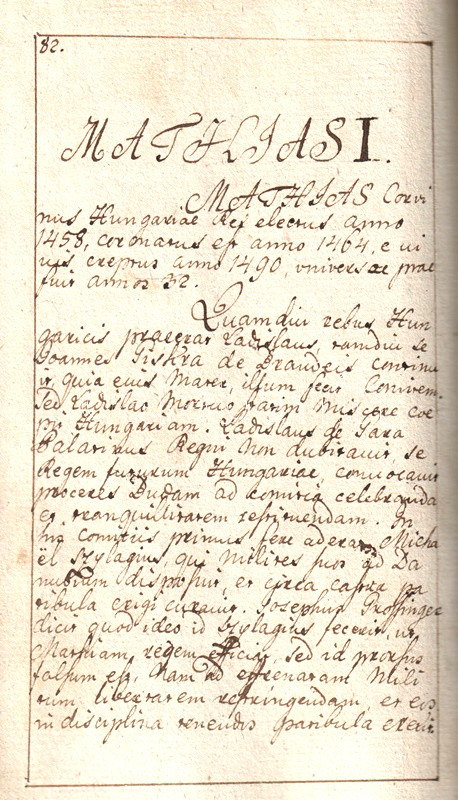 82.
MATHIAS I.
MATHIAS Corvi
nus Hungariae Rex electus anno
1458, coronatus est anno 1464, e vi
vis ereptus anno 1490, universae prae
fuit annos 32.
Quamdiu rebus Hun
garicis praeerat Ladislaus, tamdiu se
Joannes Giskra de Brandeis continu
it, quia eius Mater, illum fecit Comitem.
Sed Ladislao Mortuo statim Miscere coe
pit Hungariam. Ladislaus de Gara
Palatinus Regni Non dubitavit, se
Regem futurum Hungariae, convocavit
proceres Budam ad comitia celebranda
et tranquillitatem restituendam. In
his comitiis primus fere aderat Micha
ël Szylagius, qui Milites suos ad Da
nubium disposuit, et circa castra pa
tibula erigi curavit. Josephus
dicit quod ideo id Szylagius fecerit, ut
Mathiam regem efficiat, sed id prorsus
falsum est, Nam ad effrenatam Mili
tum libertatem restringendam, et eos
in disciplina tenendos patibula erexit.